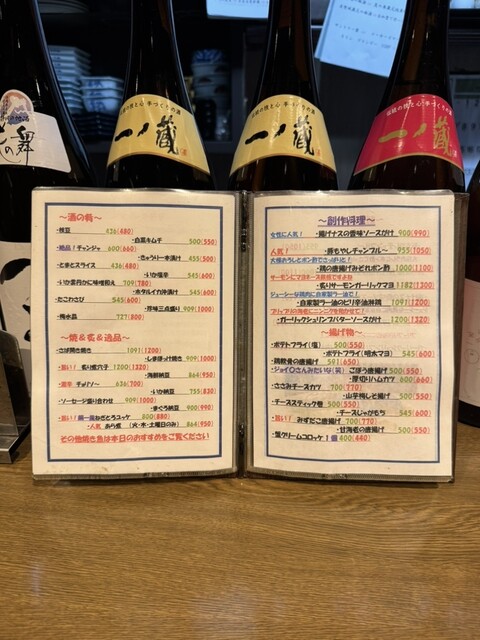 一ノ蔵
一ノ蔵
一ノ蔵
の舞
～酒の肴～
・枝豆 436(480)
・白菜キムチ 500(550)
・絶品！チャンジャ 600(660)
・きゅうり辛漬け 455(500)
・とまとスライス 436(480)
・いか塩辛 545(600)
・いか雲丹かに味噌和え 709(780)
・ホタルイカ沖漬け 545(600)
・たこわさび 545(600)
・珍味三点盛り 909(1000)
・梅水晶 727(800)
～焼&炙&逸品～
・さば開き焼き 1091(1200)
・しまほっけ焼き 909(1000)
・旨い！ 炙り〆穴子 1200(1320)
・海鮮納豆 864(950)
・栃尾揚げ 636(700)
・いか納豆 755(830)
・ソーセージ盛り合わせ 909(1000)
・まぐろ納豆 900(990)
・人気 あら煮 (火・木・土曜日のみ) 864(950)
その他焼き魚は本日のおすすめをご覧ください
～創作料理～
女性に人気！ ・揚げナスの香味ソースがけ 900(990)
人気！ ・豚もやしチャンプルー 955(1050)
・鶏の唐揚げみぞれポン酢 1000(1100)
サーモンにマヨネーズ最高ですよね
・炙りサーモンガーリックマヨ 1182(1300)
ジューシーな鶏肉に自家製ラー油で！
・自家製ラー油のピリ辛油淋鶏 1091(1200)
プリップリの海老にニンニクを効かせて！
・ガーリックシュリンプバターソースがけ 1200(1320)
～揚げ物～
・ポテトフライ(塩) 500(550)
・ポテトフライ(明太マヨ) 545(600)
・鶏軟骨の唐揚げ 591(650)
・ごぼう唐揚げ 500(550)
・厚切りハムカツ 600(660)
・ささみチーズカツ 700(770)
・山芋梅しそ揚げ 500(550)
・チーズスティック巻 500(550)
・チーズじゃがもち 545(600)
・旨い！ みずだこ唐揚げ 700(770)
・甘海老の唐揚げ 500(550)
・蟹クリームコロッケ1個 400(440)